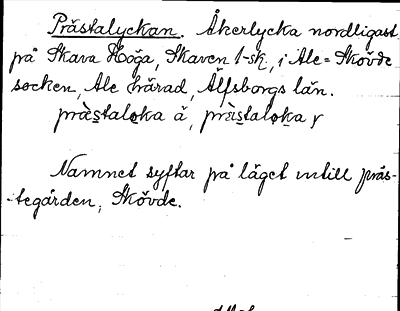 Prästalyckan. Åkerlycka nordligast
på Skava Höga, Skaven 1-sk, i Ale-Skövde
socken, Ale härad, Älfsborgs län.
prästaloka å, prästaloka y
Namnet syftar på läget intill präs-
-tegården, Skövde.